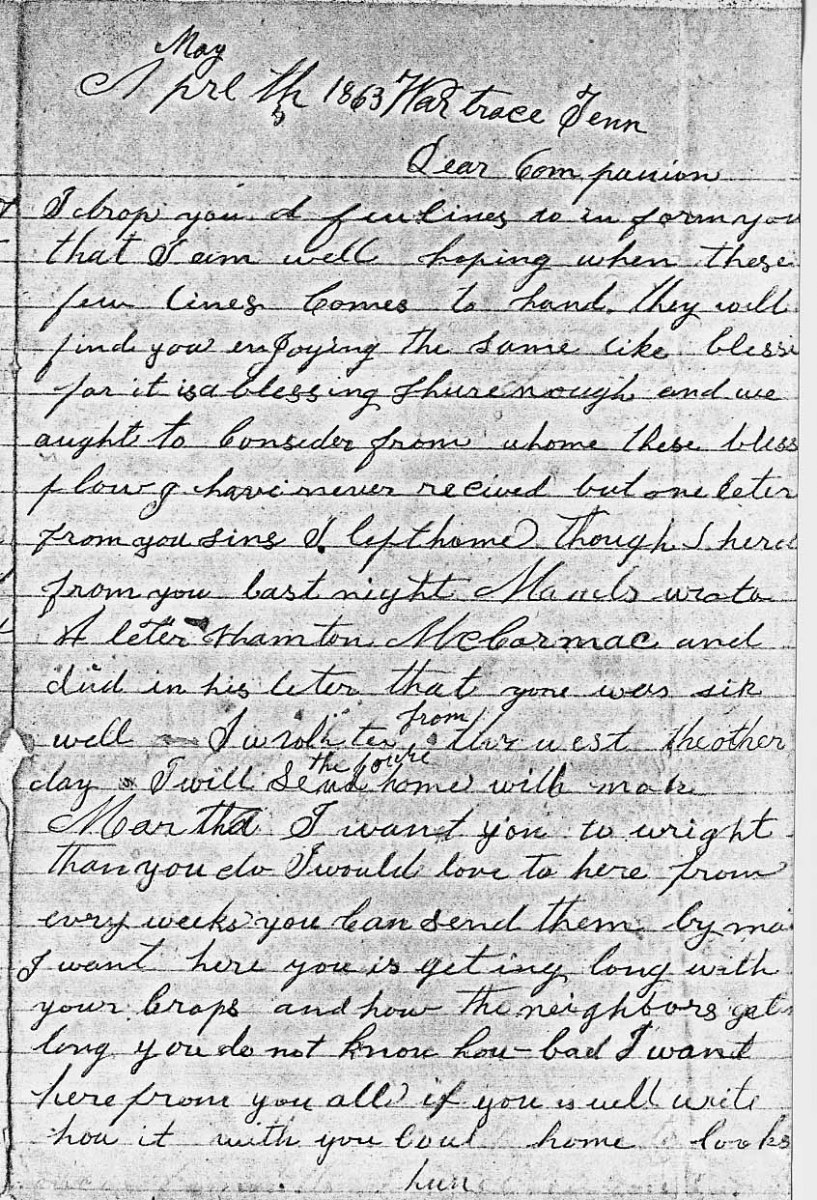 May
Aprl th 1863 Wartrace Tenn
5
Dear Companion
I drop you a few lines to in form you
that I am well hoping when these
few lines Comes to hand they will
find you enJoying the same like blessi
for it is a blessing shure nough and we
aught to Consider from whome these bless
flow I have never recived but one leter
from you sins I left home though I herd
from you last night wrote
A leter Hamton McCormac and
did in his leter that you was sik
well I from west the other
day I will send the home with
Martha I want you to wright
than you do I would love to here from
evry weeks you Can send them by ma
I want here you is geting long with
your Craps and how the neighbors get
long you do not know how bad I want
here from you all if you is well write
how it with you home looks